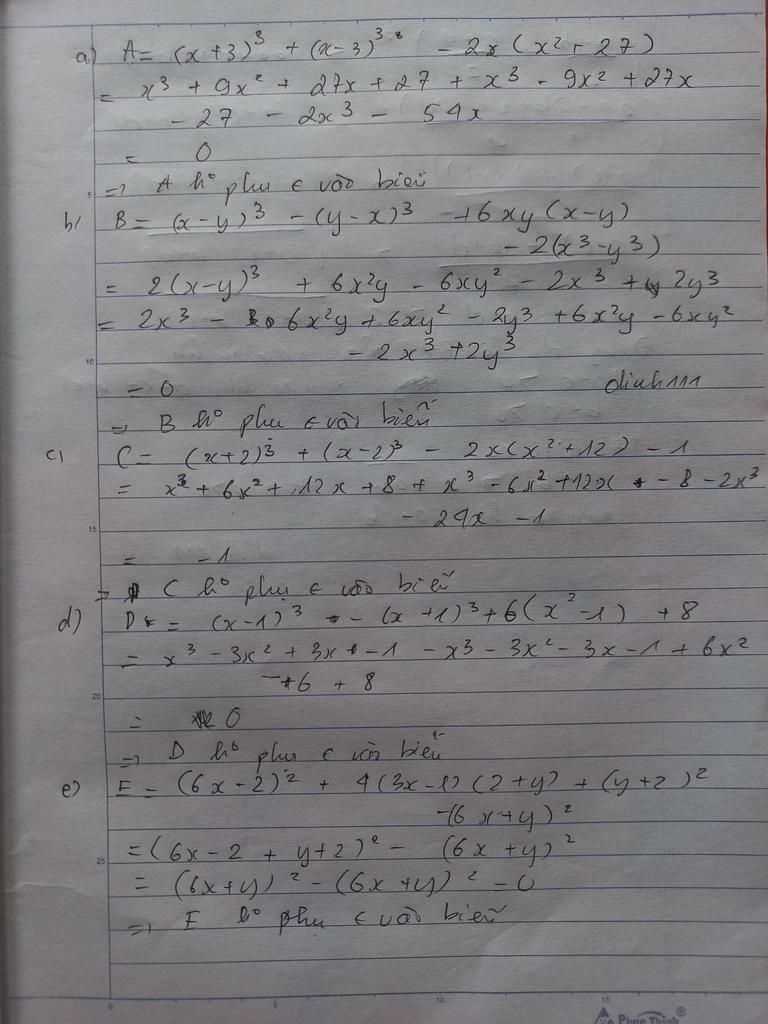 a) A = (x+3)³ + (x-3)³ - 2x(x²+27)
= x³ + 9x² + 27x + 27 + x³ - 9x² + 27x
- 27 - 2x³ - 54x
= 0
=> A ko phụ ∈ vào biến
b) B = (x-y)³ - (y-x)³ + 6xy(x-y)
- 2(x³-y³)
= 2(x-y)³ + 6x²y - 6xy² - 2x³ + 2y³
= 2x³ - 6x²y + 6xy² - 2y³ + 6x²y - 6xy²
- 2x³ + 2y³
= 0
=> B ko phụ ∈ vào biến
c) C = (x+2)³ + (x-2)³ - 2x(x²+12) - 1
= x³ + 6x² + 12x + 8 + x³ - 6x² + 12x - 8 - 2x³
- 24x - 1
= -1
=> C ko phụ ∈ vào biến
d) D = (x-1)³ - (x+1)³ + 6(x²-1) + 8
= x³ - 3x² + 3x - 1 - x³ - 3x² - 3x - 1 + 6x²
- 6 + 8
= 0
=> D ko phụ ∈ vào biến
e) E = (6x-2)² + 4(3x-1)(2+y) + (y+2)²
- (6x+y)²
= (6x-2 + y+2)² - (6x+y)²
= (6x+y)² - (6x+y)² = 0
=> E ko phụ ∈ vào biến
5
10
15
20
25
0
10
15